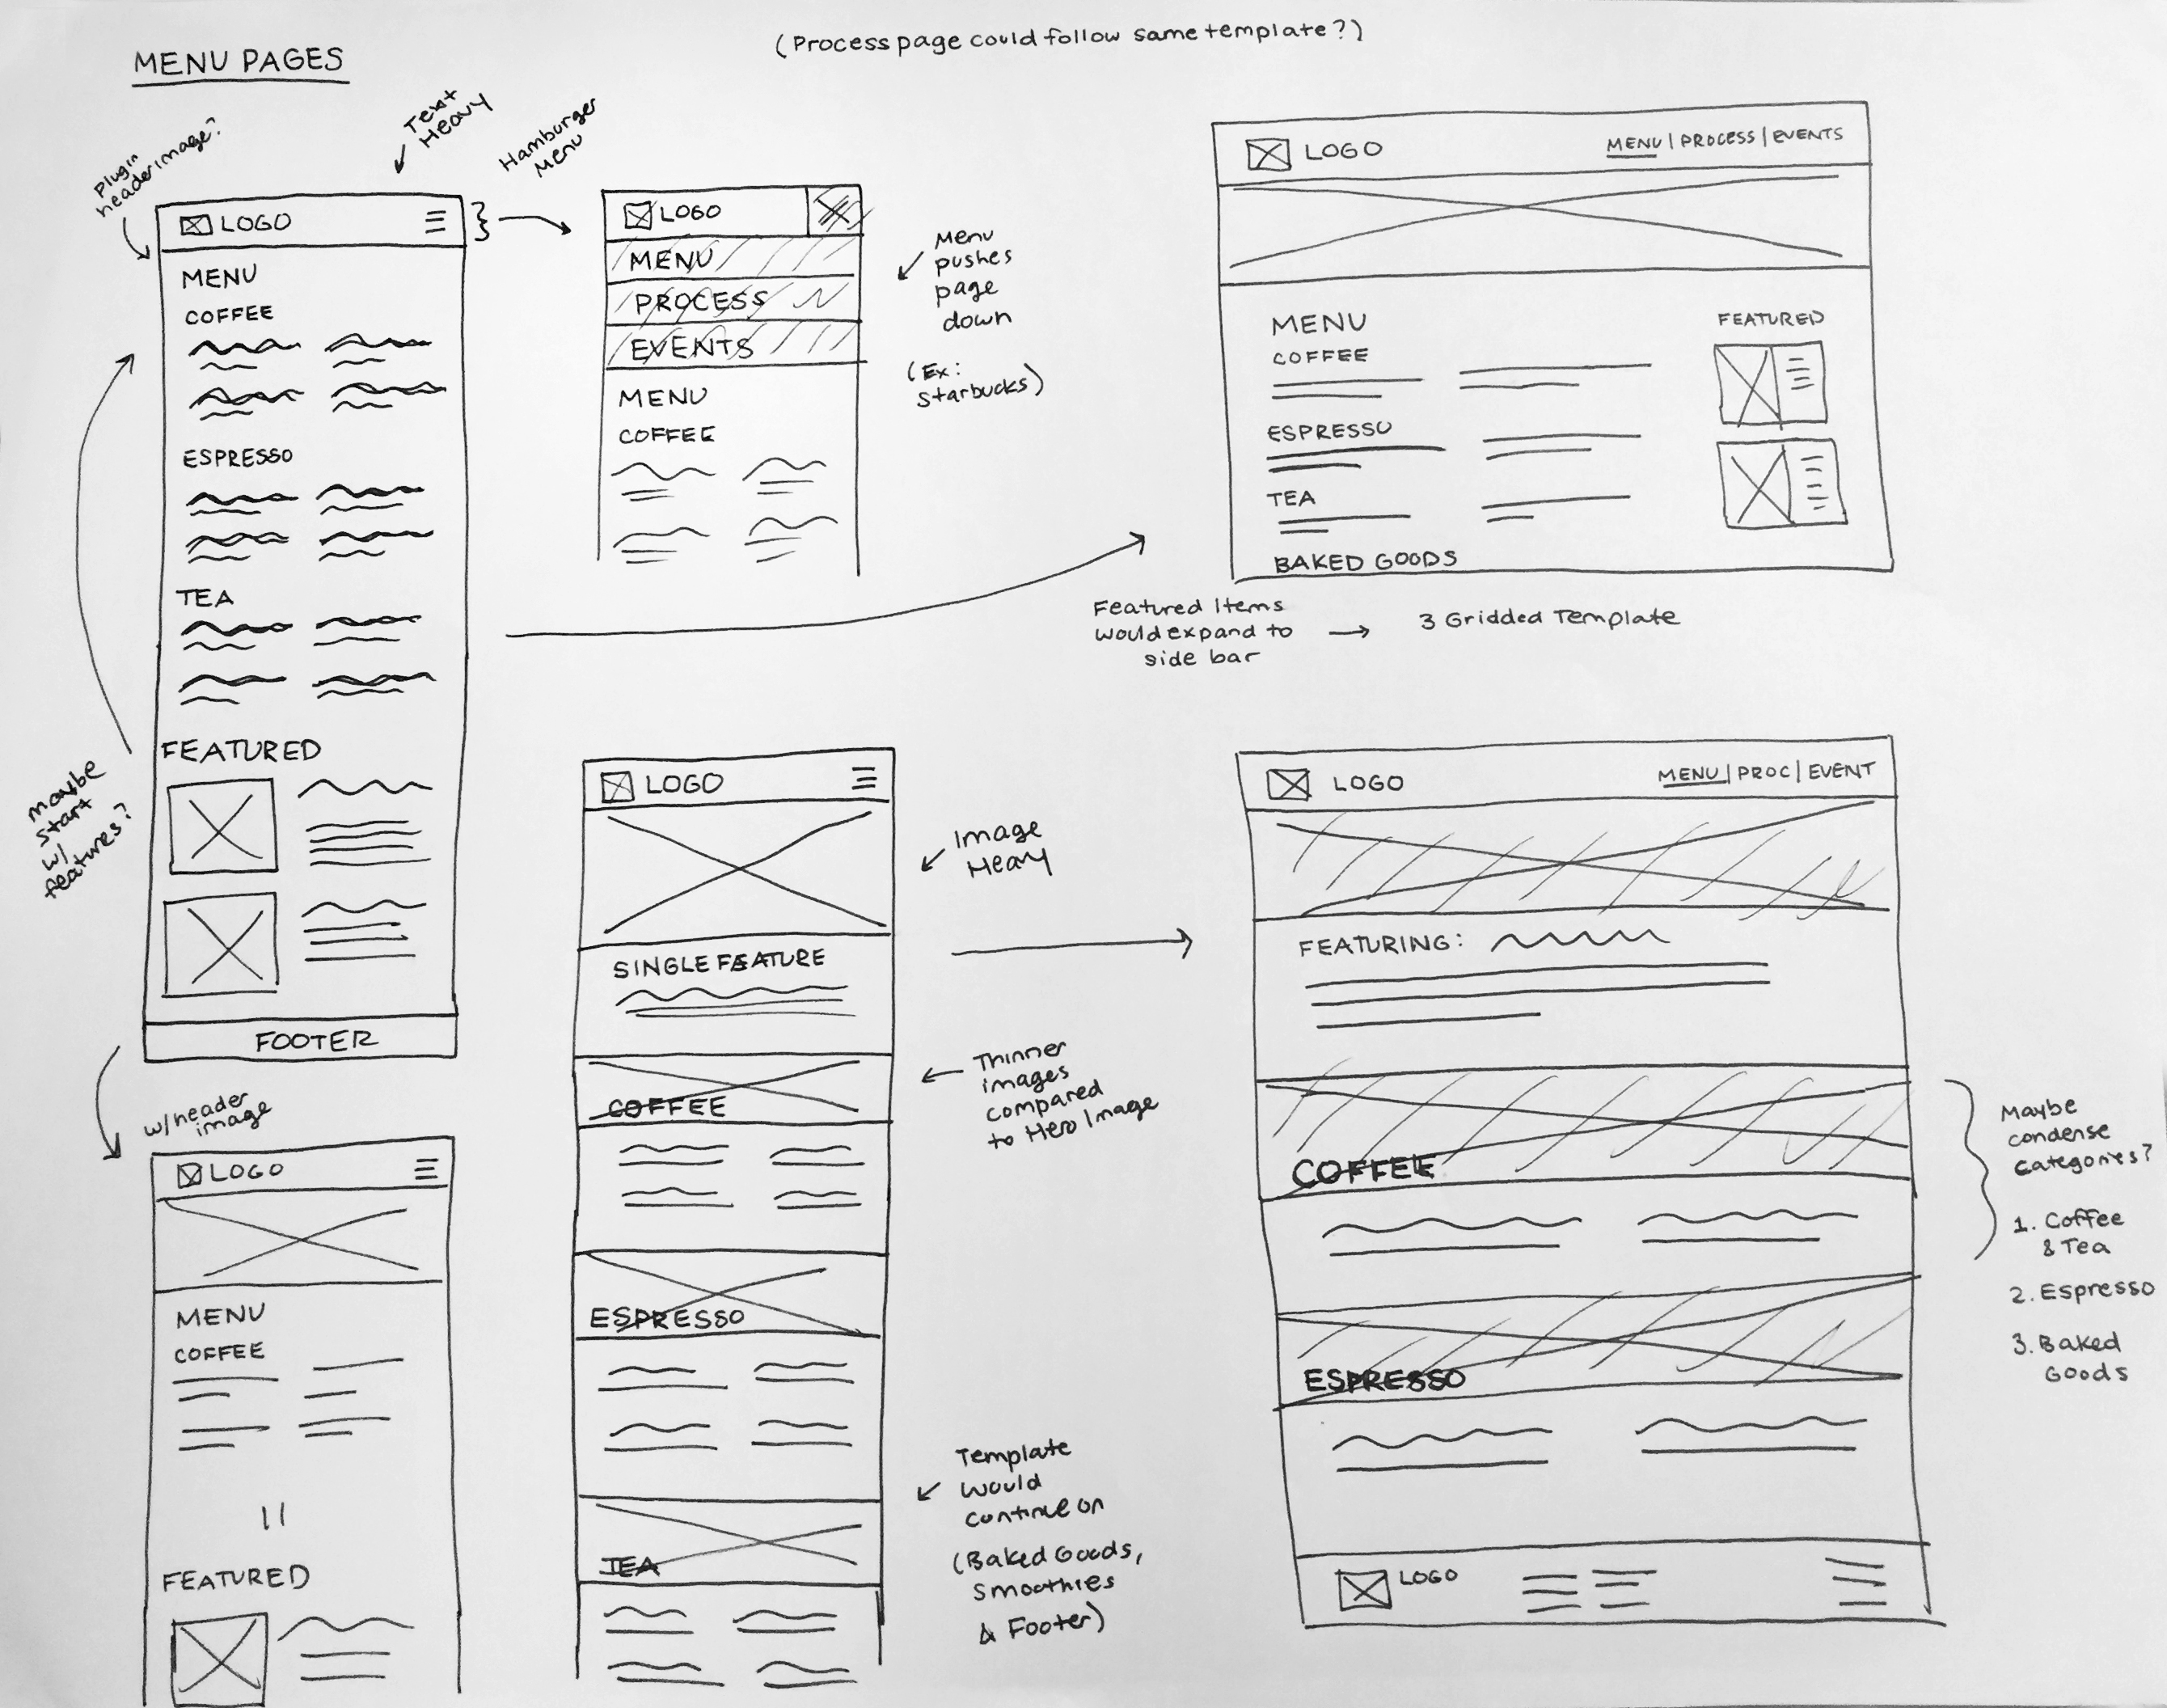 MENU PAGES
(Process page could follow same template?)
Plugin
header image?
Text
Heavy
Hamburger
Menu
LOGO
MENU
COFFEE
ESPRESSO
TEA
FEATURED
FOOTER
maybe
start
w/
features?
LOGO
MENU
PROCESS
EVENTS
MENU
COFFEE
Menu
pushes
page
down
(Ex:
Starbucks)
LOGO
MENU | PROCESS | EVENTS
MENU
COFFEE
ESPRESSO
TEA
BAKED GOODS
FEATURED
Featured Items
would expand to
side bar
3 Gridded Template
w/ header
image
LOGO
MENU
COFFEE
FEATURED
LOGO
SINGLE FEATURE
COFFEE
ESPRESSO
TEA
Image
Heavy
Thinner
images
compared
to Hero Image
Template
would
continue on
(Baked Goods,
Smoothies
& Footer)
LOGO
MENU | PROC | EVENT
FEATURING:
COFFEE
ESPRESSO
LOGO
Maybe
condense
categories?
1. Coffee
& Tea
2. Espresso
3. Baked
Goods